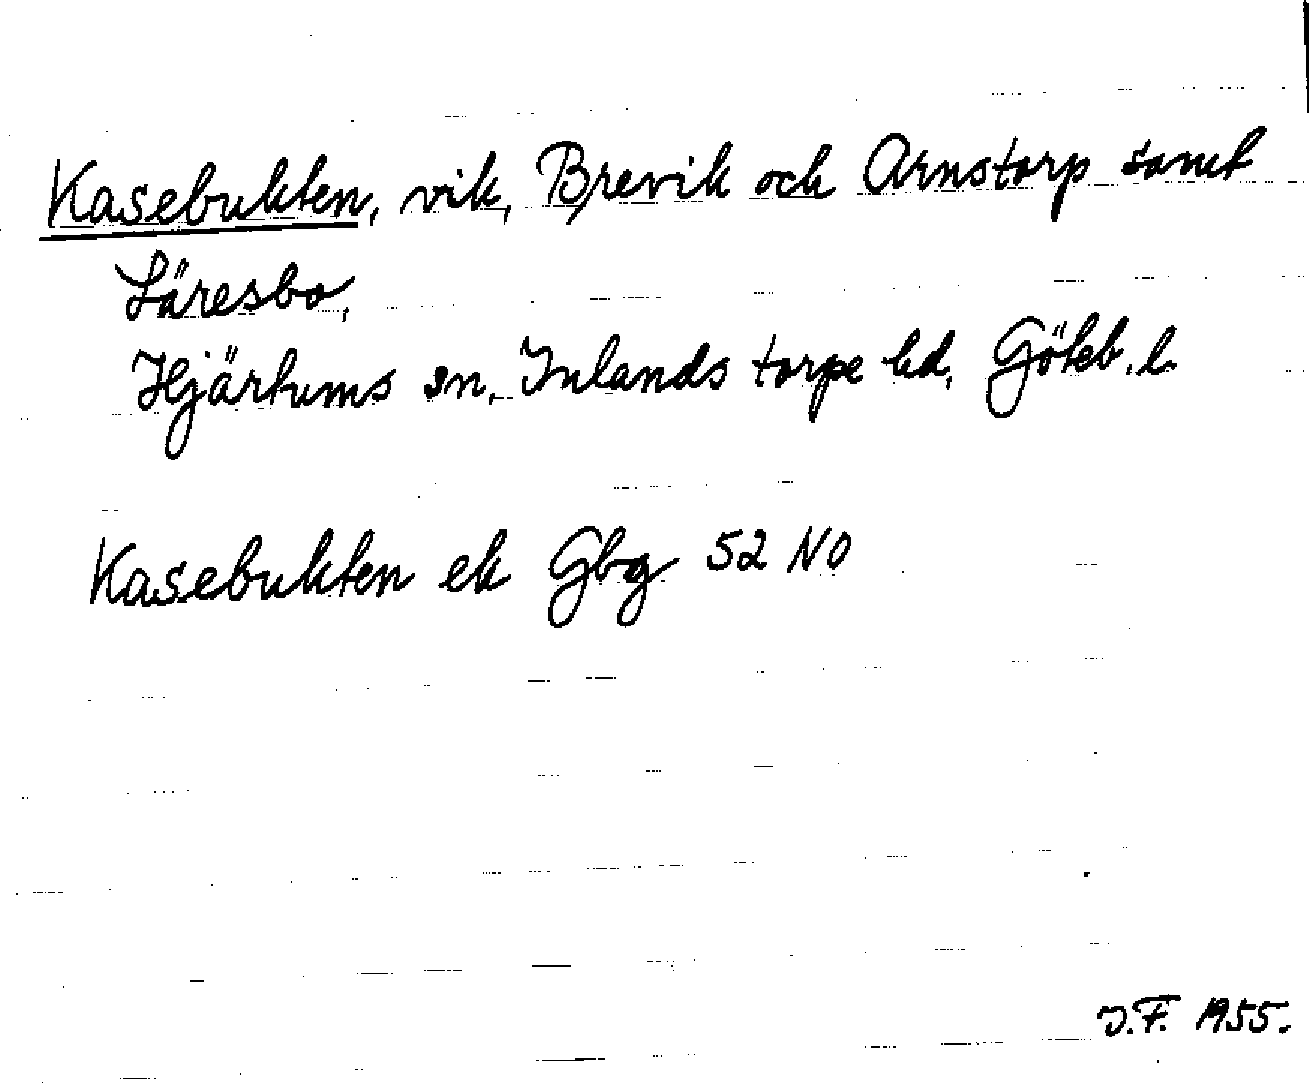 Kasebukten, vik, Brevik och Arnstorp samt
Läresbo,
Hjärtums sn, Inlands torpe hd, Göteb. l.
Kasebukten ek Gbg 52 NO
J.F. 1955.